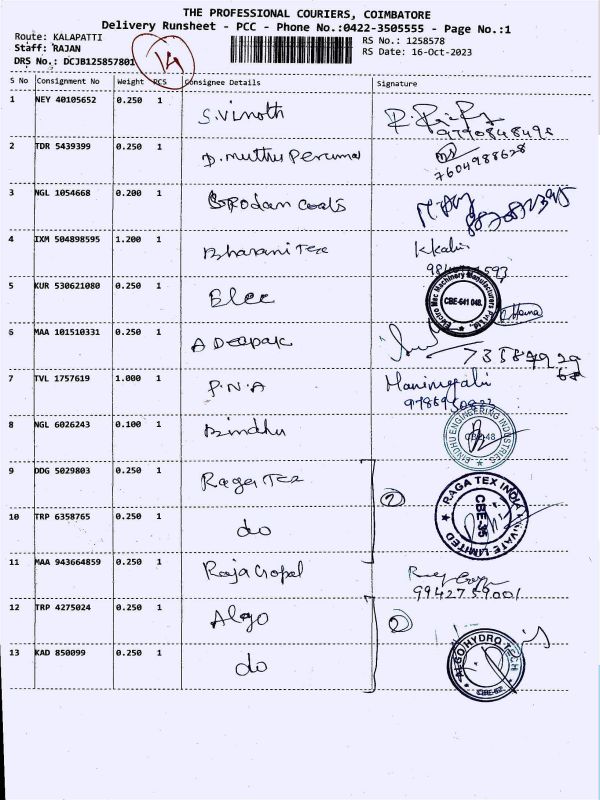 THE PROFESSIONAL COURIERS, COIMBATORE
Delivery Runsheet - PCC - Phone No.:0422-3505555 - Page No.:1
Route: KALAPATTI
RS No.: 1258578
Staff: RAJAN
RS Date: 16-Oct-2023
DRS No.: DCJB125857801
14
S No Consignment No Weight PCS Consignee Details Signature
1 NEY 40105652 0.250 1 S.Vinoth
9790848498
2 TDR 5439399 0.250 1 D.Muthu Perumal
7604988628
3 NGL 1054668 0.200 1 coals
4 IXM 504898595 1.200 1 Bharani Tex
5 KUR 530621080 0.250 1 Elec
Electro Mec Machinery Manufacturers Pvt Ltd.,
CBE-641 048.
6 MAA 101510331 0.250 1 A Deepak
7 TVL 1757619 1.000 1 P.N.A
8 NGL 6026243 0.100 1 Bindhu
BINDHU ENGINEERING INDUSTRIES
9 DDG 5029803 0.250 1 Raga Tex
2
RAGA TEX INDIA PRIVATE LIMITED
CBE-35
10 TRP 6358765 0.250 1 do
11 MAA 943664859 0.250 1 Raja Gopal
9942759001
12 TRP 4275024 0.250 1 Algo
2
ALGO HYDRO TECH
CBE-62
13 KAD 850099 0.250 1 do